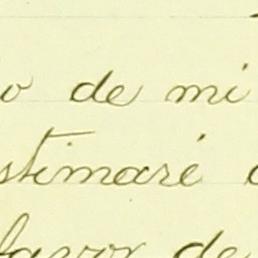 de mi
estimaré
favor de